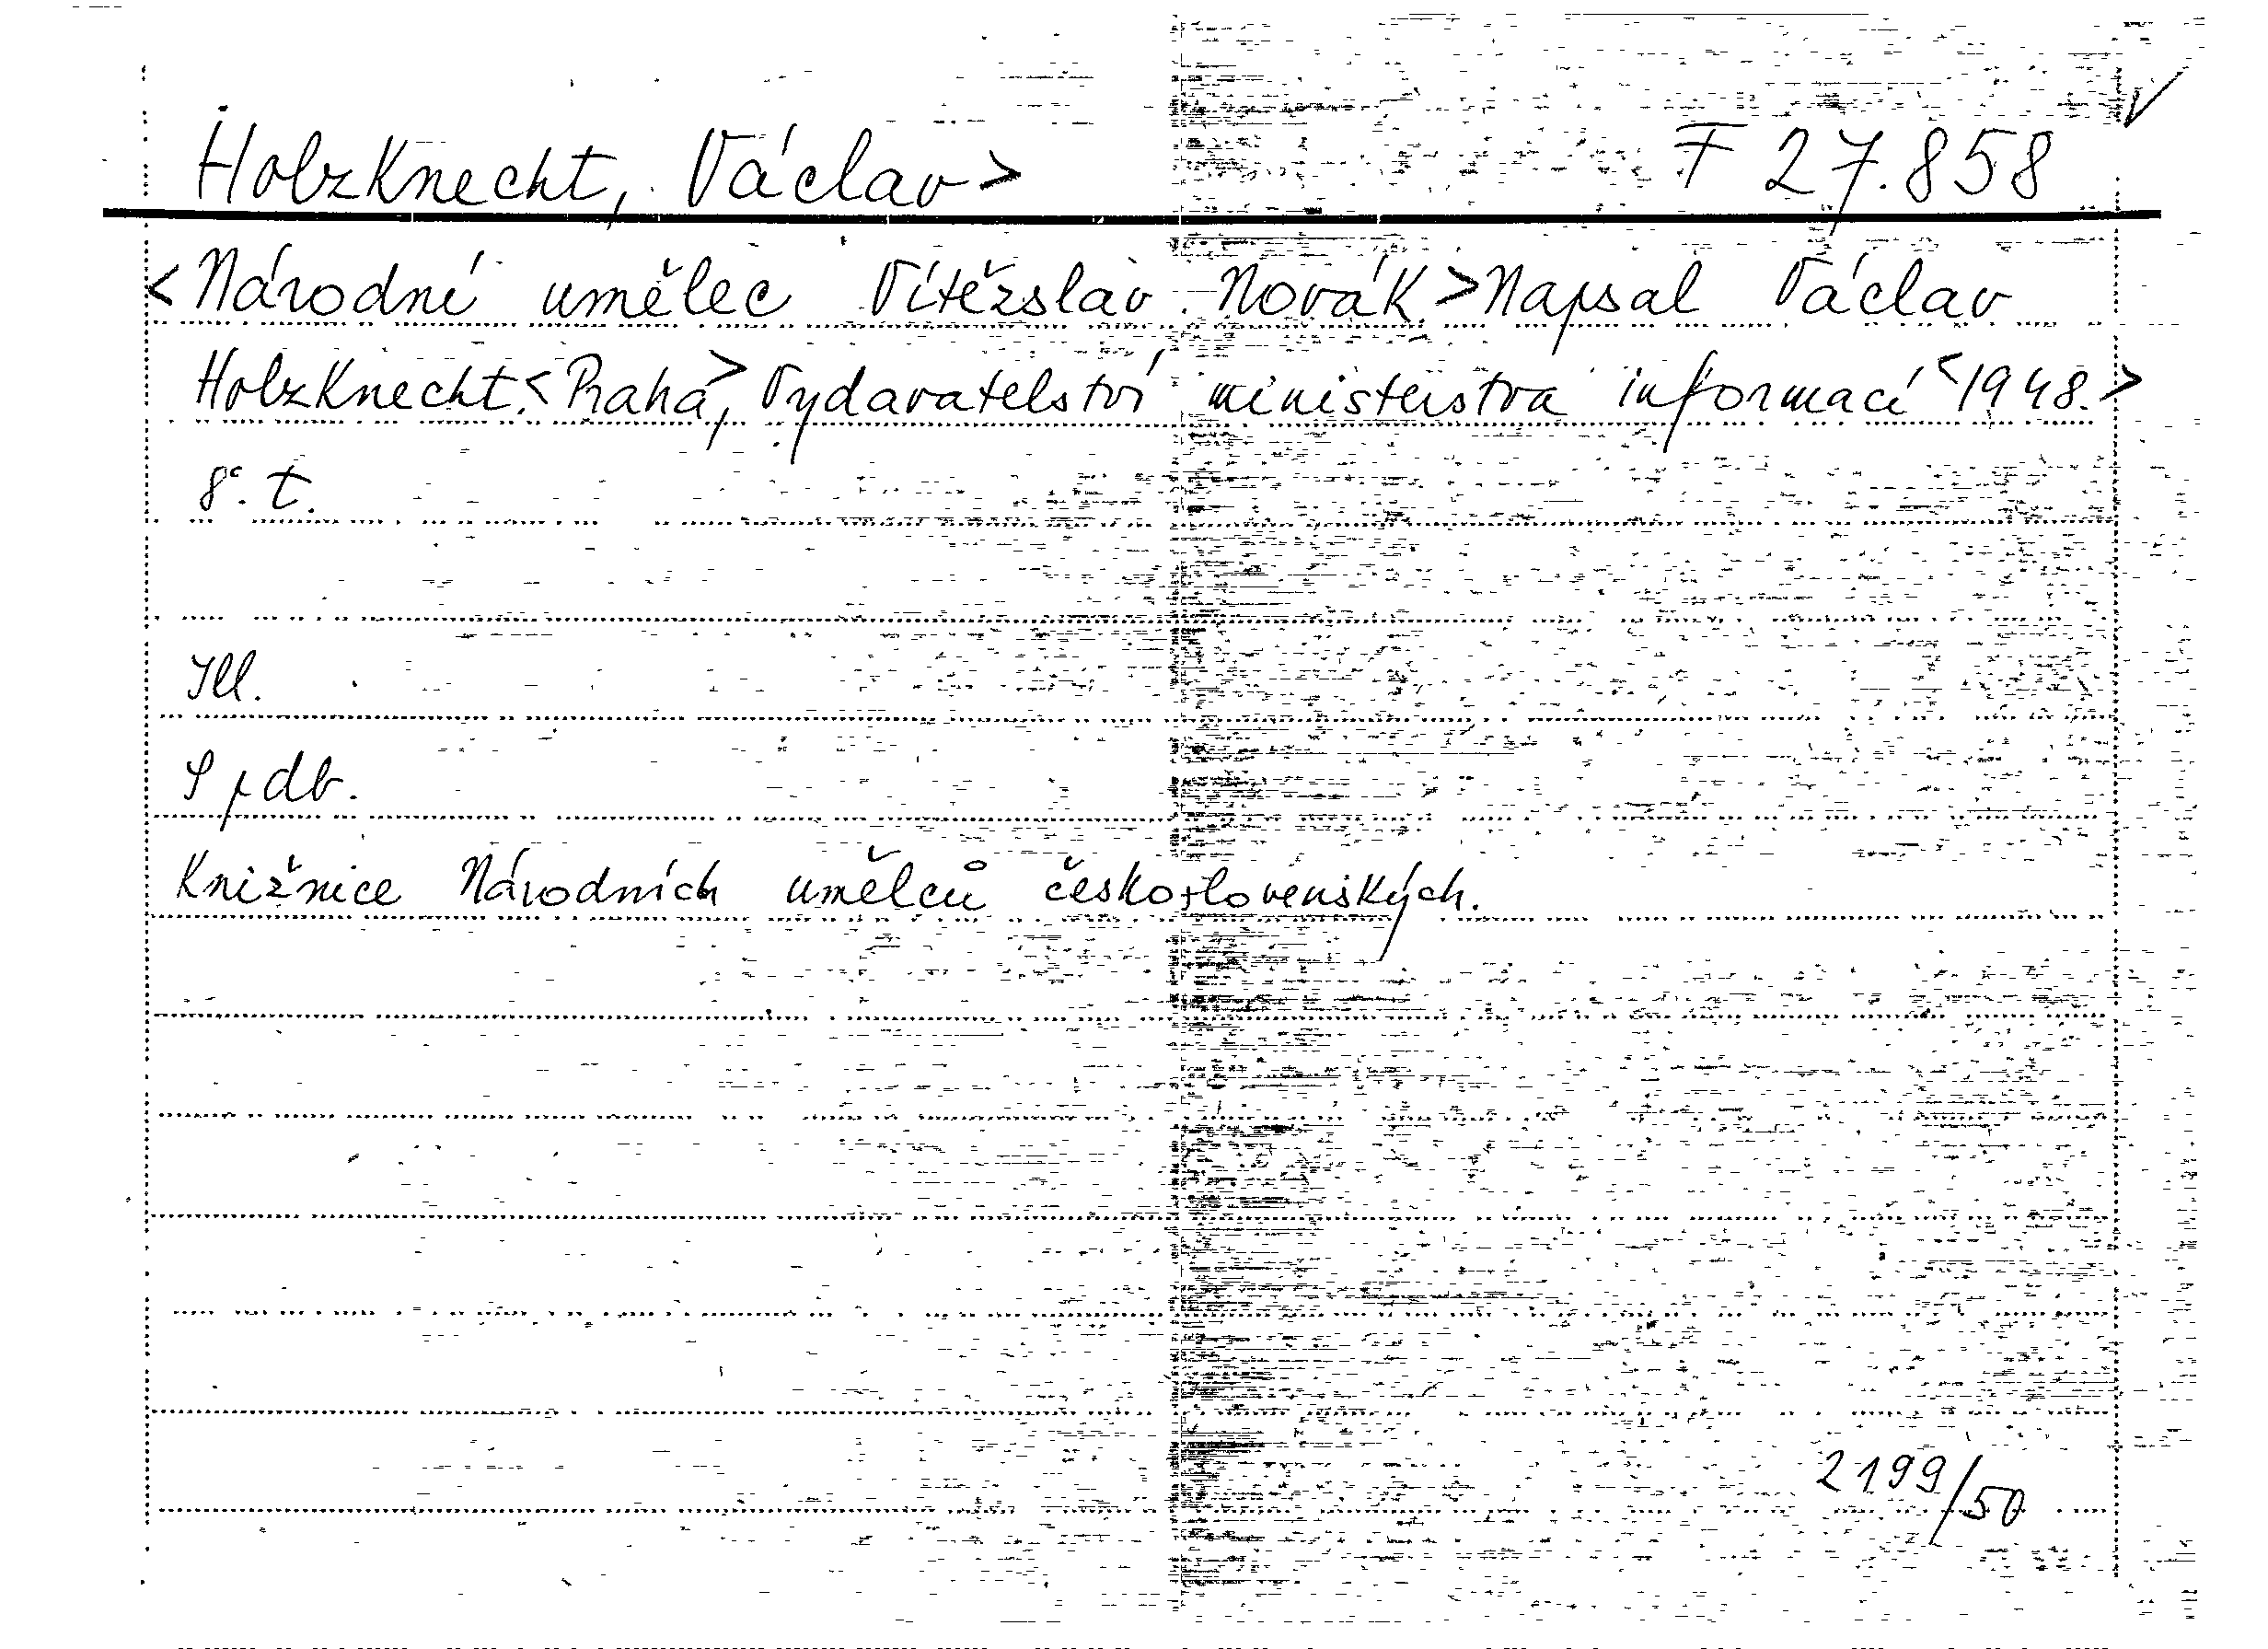 Holzknecht, Václav> F 27.858
<Národní umělec Vítězslav Novák.>Napsal Václav
Holzknecht.<Praha,> Vydavatelství ministerstva informací <1948.>
8°. t.
Ill.
S pdb.
Knižnice Národních umělců československých.
2199/50